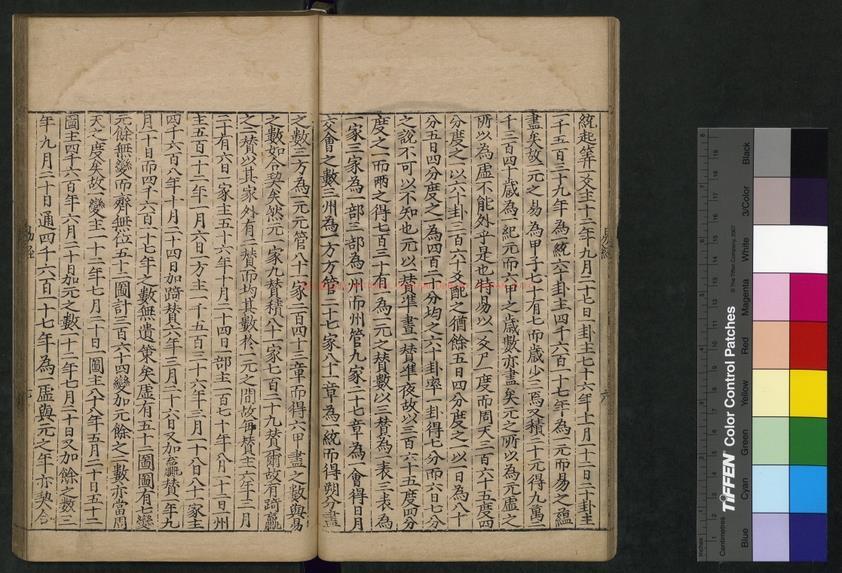 統起筭一爻主十二年九月二十七日一卦主七十六年十一月十二日二十卦主
一千五百三十九年為一統六十卦主四千六百一十七年為一元而易之蘊
盡矣故一元之易為甲子七十有七而歲少三焉又積二十元得九萬二
千三百四十歲為一紀元而六甲之歲數亦盡矣元之所以為元虛之
所以為虛不能外乎是也特易以一爻尸一度而周天三百六十五度四
分度之一以六十卦三百六十爻配之猶餘五日四分度之一以一日為八十
分五日四分度之一為四百二十分均之六十卦率一卦得七分而六日七分
之說不可以不知也元以一贊準一晝一贊準夜故以三百六十五度四分
度之一而兩之得七百三十有一為二元之贊數以三贊為一表三表為
一家三家為一部三部為一州而州管九家二十七章為一會得日月
交會之數三州為一方方管二十七家八十一章為一統而得朔分盡
之數三方為一元元管八十一家二百四十三章而得六甲一盡之數與易
之數如合契矣然元一家九贊積八十一家七百二十九贊爾故有踦贏
之二贊以其家外有二贊而均其數於一元之間故每贊主六年三月
二十有六日一家主五十六年十月二十四日一部主一百七十年八月十二日一州
主五百一十二年一月六日一方主一千五百三十六年三月一十八日八十一家主
四千六百八年十月二十四日加踦贊六年三月二十六日又加贏贊一年九
月一十日而四千六百一十七年之數無遺策矣虛有五十二圖圖有七變
元餘無變而齊無位五十二圖計三百六十四變加元餘之一數亦當周
天之度矣故一變主一十二年七月二十日一圖主八十八年五月二十日五十二
圖主四千六百年六月二十日加元之數一十二年七月二十日又加餘之數三
年九月二十日通四千六百一十七年為一虛與元之年亦契合